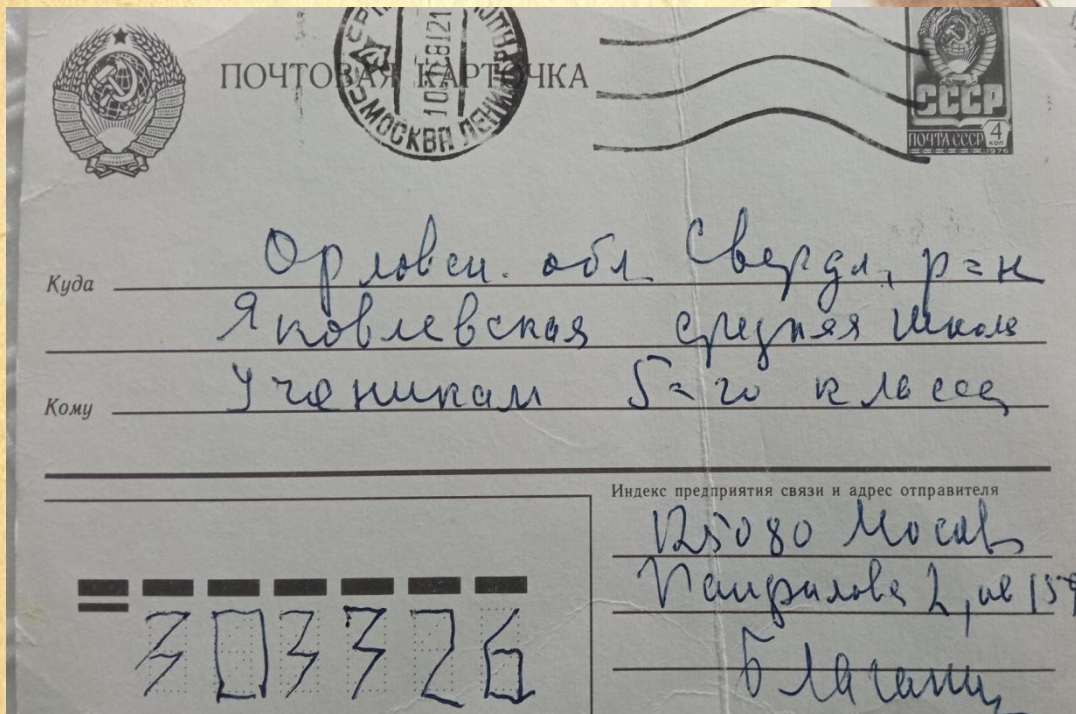 ПОЧТОВАЯ КАРТОЧКА
МОСКВА
СССР
ПОЧТА СССР 4 КОП
1976
Куда Орловск. обл Свердл. р=н
Яковлевская средняя школа
Кому Ученикам 5=го класса
Индекс предприятия связи и адрес отправителя
125080 Москва
Панфилова 2, кв 159
303326